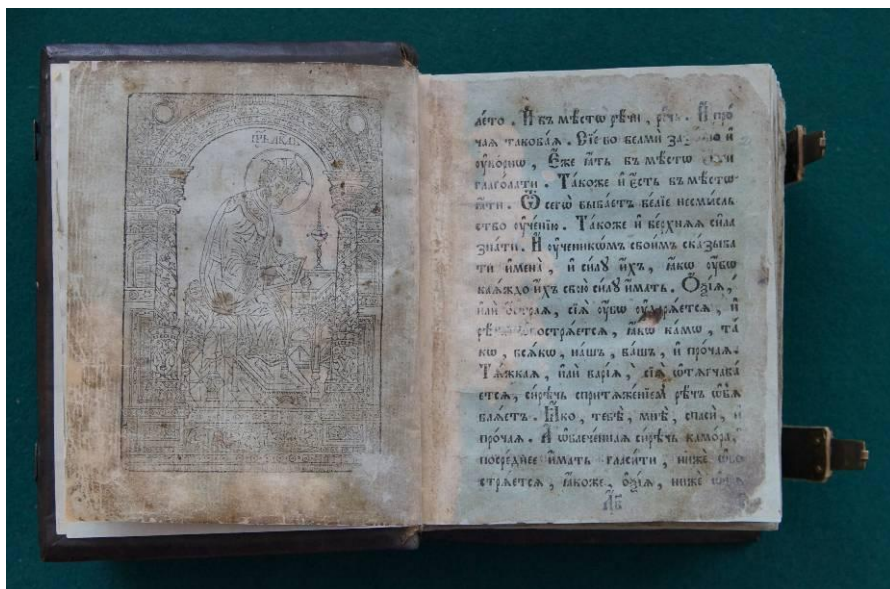 лѣто . И҆ въ мѣстѡ рѣчи , И҆ про
чаѧ таковаѧ . Сїе бо ѕѣлѡ и҆
ᲂу҆коризно , Е҆же ꙗ҆ть въ мѣстѡ
глаго́лати . Та́коже и҆ є҆́сть въ мѣстѡ
ꙗ҆ти . Ѿ сегѡ̀ быва́етъ ве́лїе несмы́сль
ство ᲂу҆че́нїю . Та́коже и҆ ве́рхнѧѧ си́ла
зна́ти . И҆ ᲂу҆ченикѡ́мъ свои̑мъ ска́зыва
ти и҆мена̀ , и҆ си́лꙋ и҆́хъ , ꙗ҆́кѡ ᲂу҆́бѡ
ка́ѧждо и҆́хъ свою̀ си́лꙋ и҆́мать . Ѻ҆ѯі́ѧ ,
и҆лѝ ѻ҆́страѧ , сїѧ̀ ᲂу҆́бѡ ᲂу҆дарѧ́етсѧ , и҆
ꙗ҆́кѡ ка́мѡ , та́
кѡ , всѧ́кѡ , на́шъ , ва́шъ , и҆ про́чаѧ .
Тѧ́жкаѧ , и҆лѝ варі́ѧ , сїѧ̀ ѡ҆тѧгчава́
етсѧ , си́рѣчь спритѧже́нїем рѣ́чь ѡ҆б̾ѧ
влѧ́етъ . Ꙗ҆́кѡ , тебѣ̀ , мнѣ̀ , спасѝ , и҆
про́чаѧ . А ѡ҆блече́ннаѧ си́рѣчь камо́ра ,
посре́днее и҆́мать гласи́ти , нижѐ
стрѧ́етсѧ , ꙗ҆́коже , ѻ҆ѯі́ѧ , нижѐ